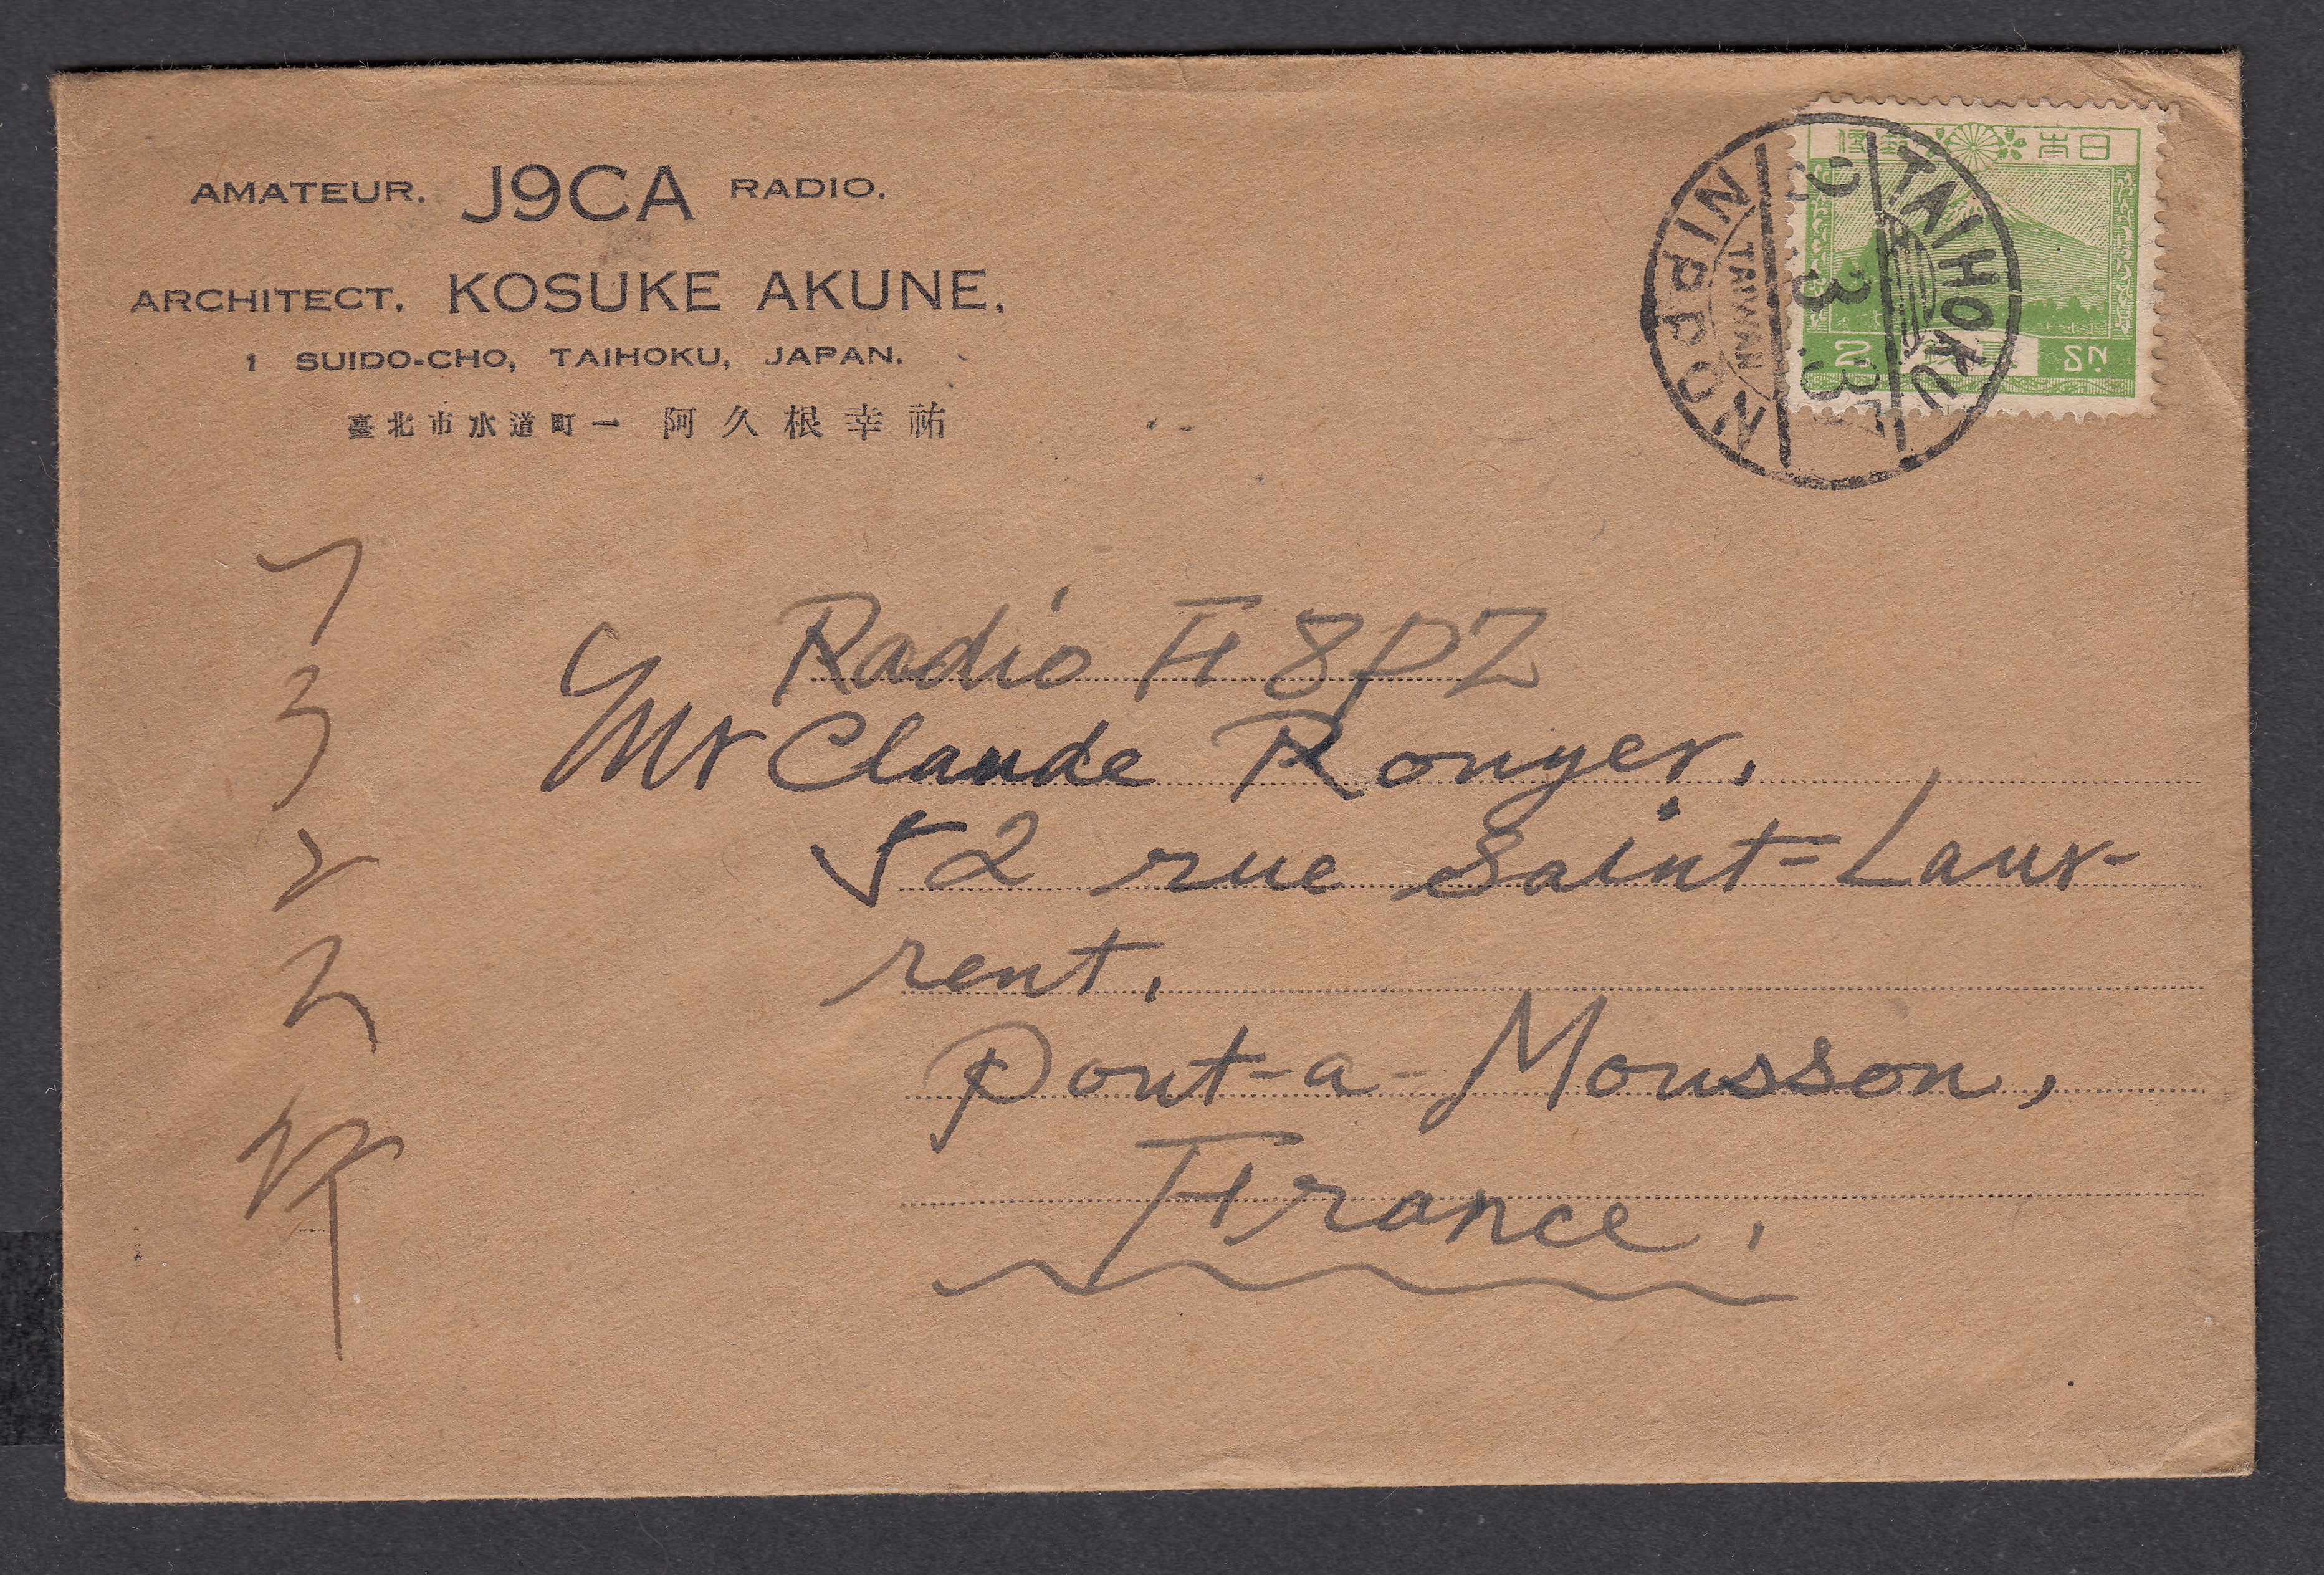 AMATEUR. J9CA RADIO.
ARCHITECT. KOSUKE AKUNE.
1 SUIDO-CHO, TAIHOKU, JAPAN.
臺北市水道町一 阿久根幸祐
日本
2 SN
TAIHOKU
TAIWAN
NIPPON
Radio F8PZ
Mr Claude Rouyer,
52 rue Saint-Laur-
rent,
Pont-a-Mousson,
France.